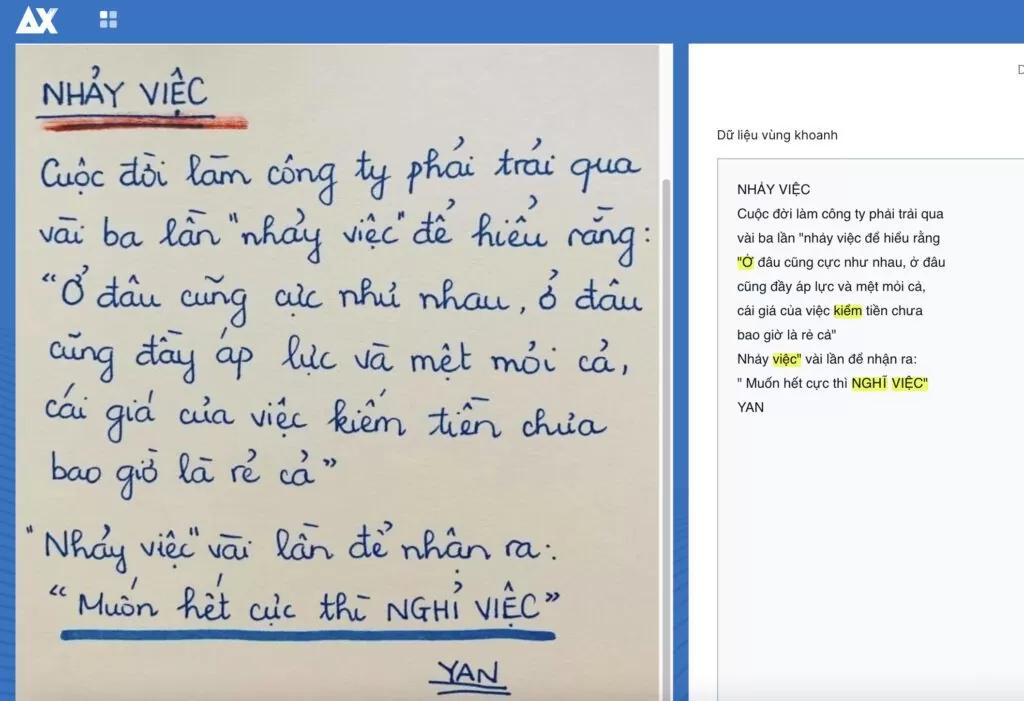 AX
NHẢY VIỆC
Cuộc đời làm công ty phải trải qua
vài ba lần "nhảy việc" để hiểu rằng:
"Ở đâu cũng cực như nhau, ở đâu
cũng đầy áp lực và mệt mỏi cả,
cái giá của việc kiếm tiền chưa
bao giờ là rẻ cả"
"Nhảy việc" vài lần để nhận ra:
"Muốn hết cực thì NGHỈ VIỆC"
YAN
Dữ liệu vùng khoanh
NHẢY VIỆC
Cuộc đời làm công ty phải trải qua
vài ba lần "nhảy việc để hiểu rằng
"Ở đâu cũng cực như nhau, ở đâu
cũng đầy áp lực và mệt mỏi cả,
cái giá của việc kiếm tiền chưa
bao giờ là rẻ cả"
Nhảy việc" vài lần để nhận ra:
" Muốn hết cực thì NGHĨ VIỆC"
YAN